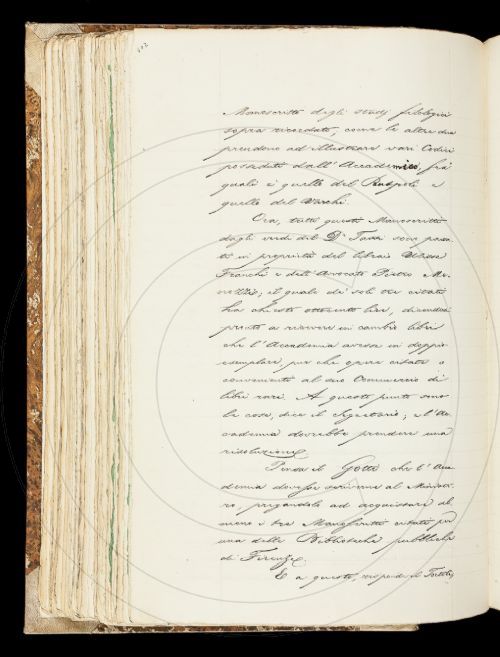 Manoscritto degli studj filologici
sopra ricordato, come le altre due
prendono ad illustrare vari Codici
posseduti dall'Accademico, fra
quali è quello del Ruspoli e
quello del Varchi.
Ora, tutti questi Manoscritti
dagli eredi del Dr Tassi sono passa-
ti in proprietà del libraio Ulisse
Franchi e dell'Avvocato Pietro
il quale de' soli tre citati
ha chiesto ottocento lire, dicendosi
pronto a ricevere in cambio libri
che l'Accademia avesse in doppio
esemplare, pur che opere citate o
convenienti al suo Commercio di
libri rari. A questo punto sono
le cose, dice il Segretario; e l'Ac-
cademia dovrebbe prendere una
risoluzione.
Pensa il Gotti che l'Acca-
demia dovesse scriverne al Minist-
ro, pregandolo ad acquistare al-
meno i tre Manoscritti citati per
una delle Biblioteche pubbliche
di Firenze.
E a questo, risponde il Tortoli,